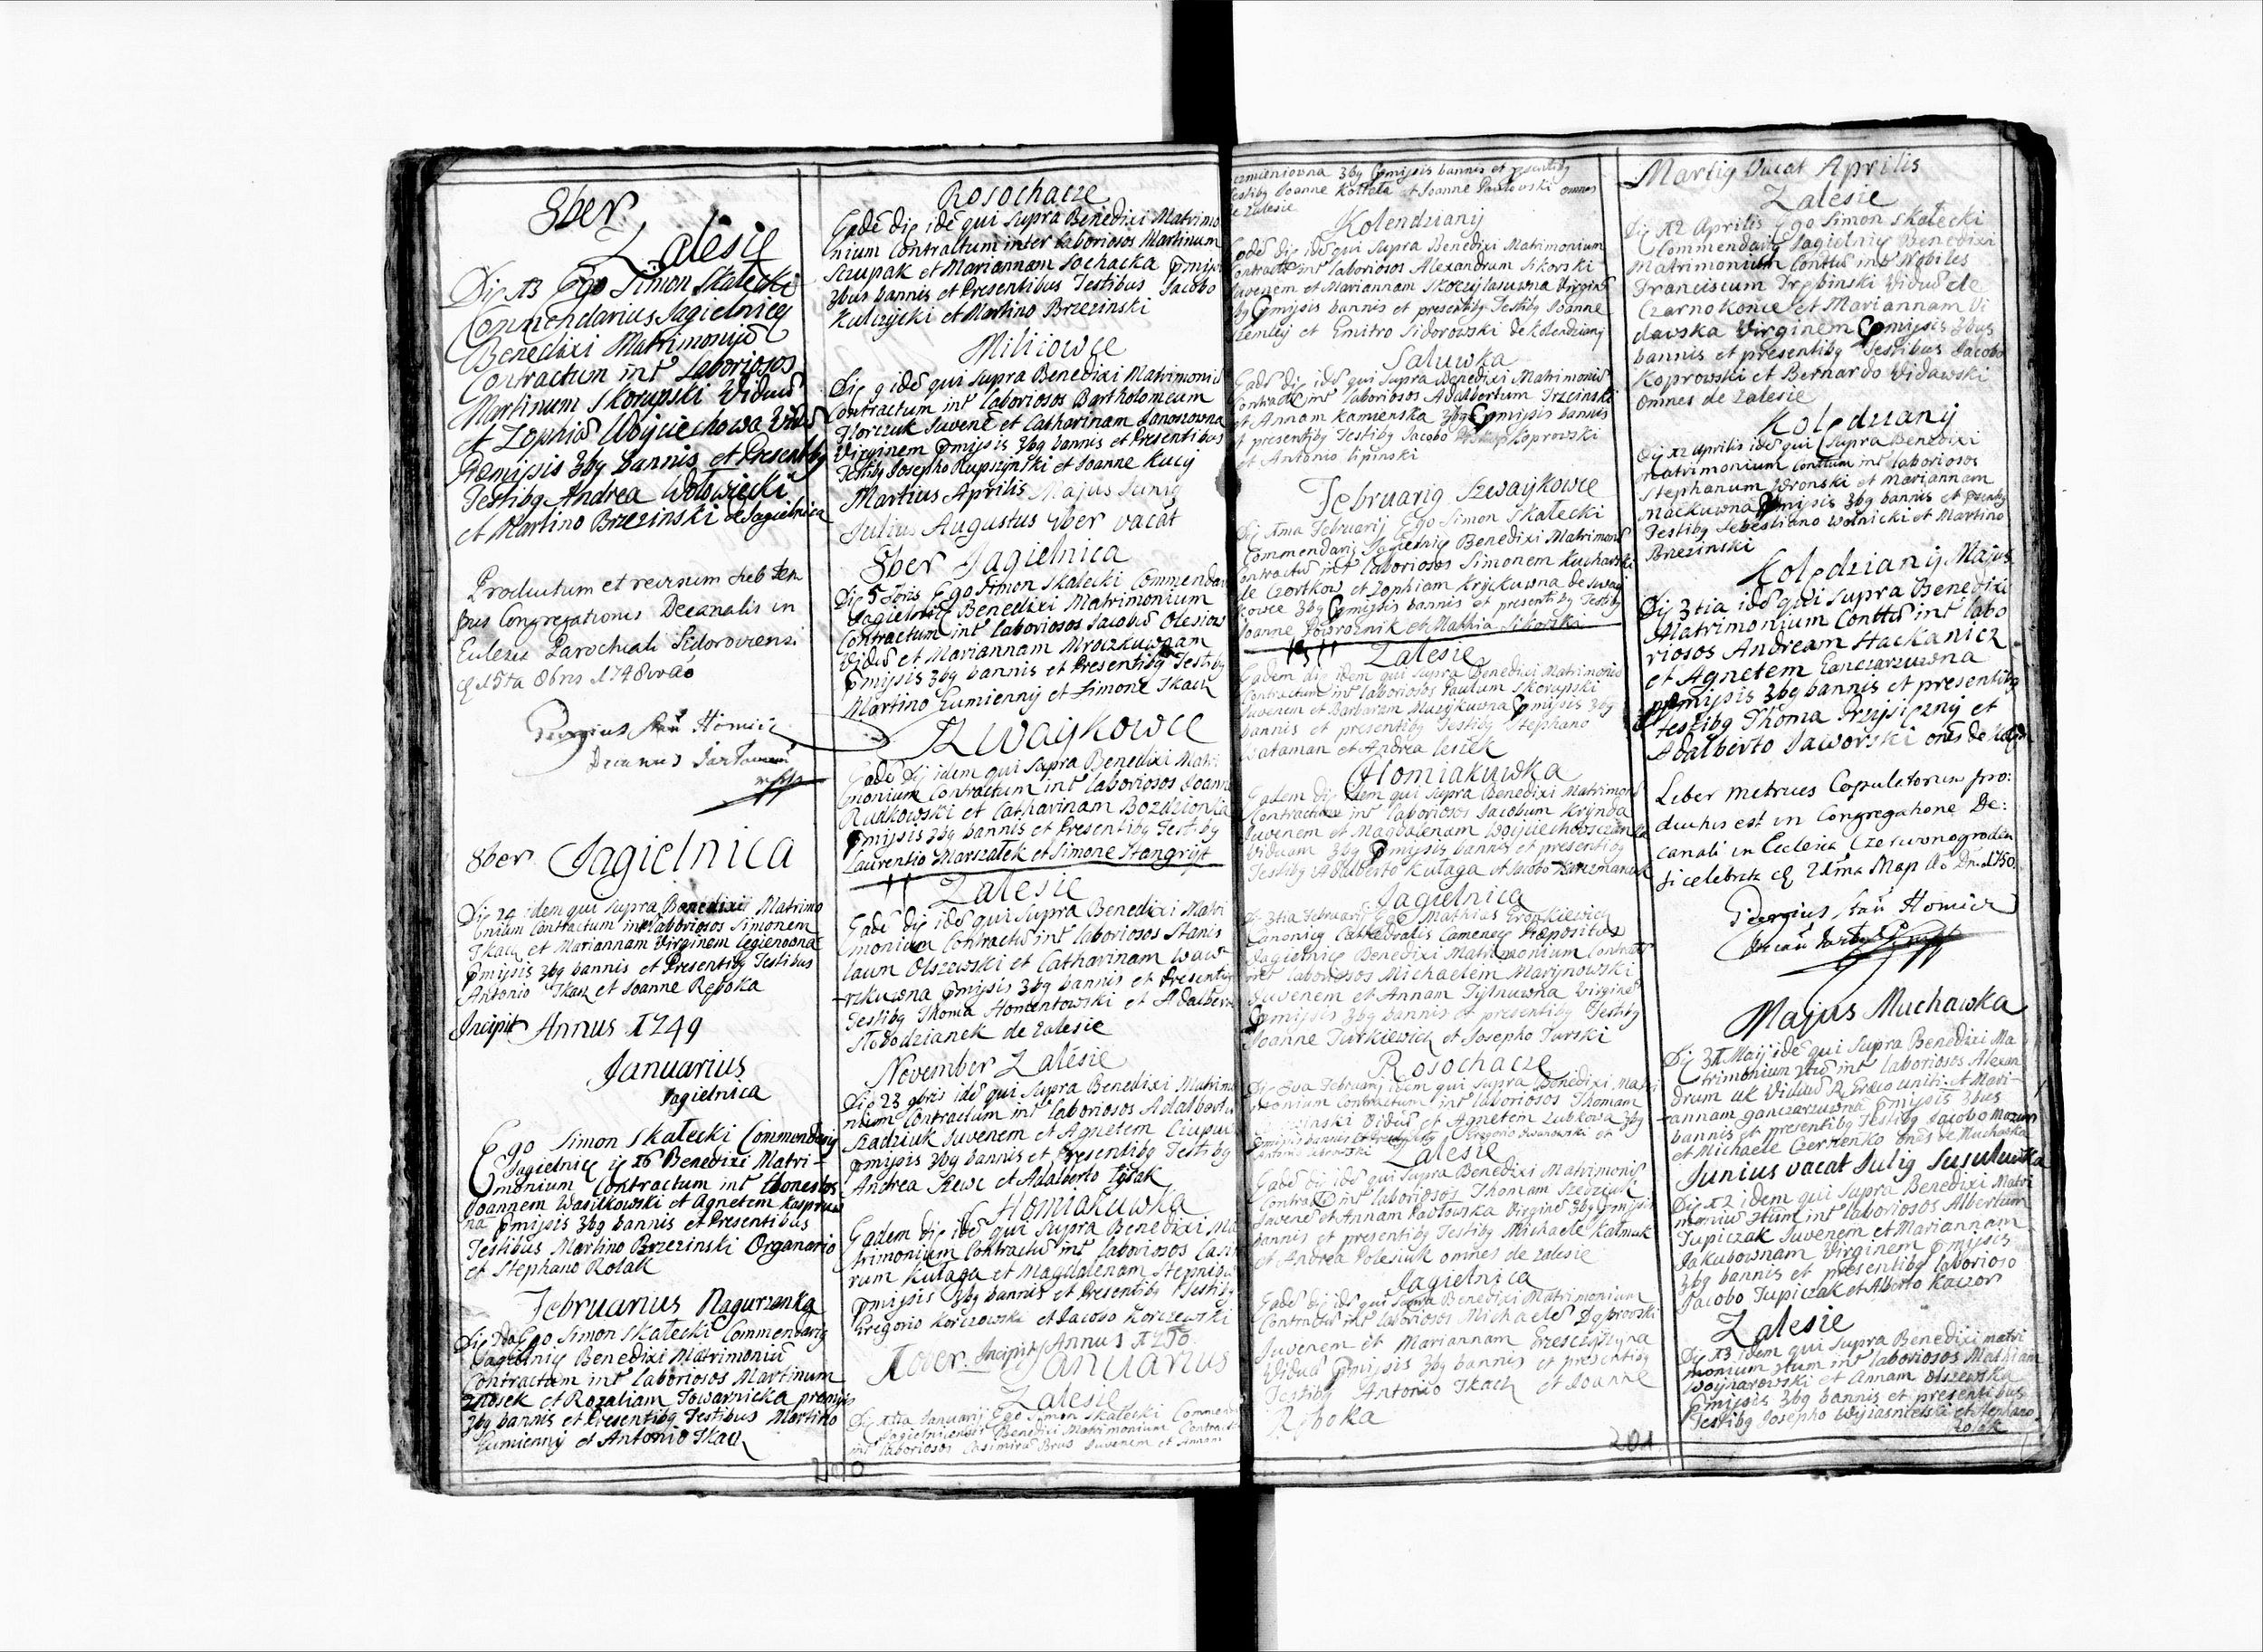 8ber
Zalesie
Die 13 Ego Simon Skałecki
Commendarius Jagielnicę
Benedixi Matrimoniū
Contractum int laboriosos
Martinum Skorupski Viduū
et Zophiā Woyciechowa Vidu
Præmijsis 3bq bannis et Presentibq
Testibq Andrea Wołowiecki
et Martino Brzezinski de Jagielnica
Productum et revisum sub tem
pus Congregationis Decanalis in
Ecclesia Parochiali Sidoroviensi
15ta 8bris 1748
Georgius Homicz
Decanus
8ber Jagielnica
Die 24 idem qui supra Benedixi Matrimo
nium Contractum int laboriosos Simonem
Tkacz et Mariannam Virginem legienowna
pmijsis 3bq bannis et Presentibq Testibus
Antonio Tkacz et Joanne Repoka
Incipit Annus 1749
Januarius
Jagielnica
Ego Simon Skałecki Commendariq
Jagielnicę 16 Benedixi Matri-
monium Contractum int honestos
Joannem Wasilkowski et Agnetem Kasprow
na pmijsis 3bq bannis et Presentibus
Testibus Martino Brzezinski Organario
et Stephano Rolak
Februarius Nagurzanka
Die Ego Simon Skałecki Commendariq
Jagielnicę Benedixi Matrimoniū
Contractum int laboriosos Martinum
et Rozaliam Towarnicka premijsis
3bq bannis et Presentibq Testibus Martino
Gumienny et Antonio Tkacz
200
Rosochacze
Eadē die idē qui supra Benedixi Matrimo
nium Contractum inter laboriosos Martinum
Szczupak et Mariannam Sochacka pmijsis
3bus bannis et Presentibus Testibus Jacobo
Kulczycki et Martino Brzezinski
Miliowce
Die 9 idē qui supra Benedixi Matrimoniū
Contractum int laboriosos Bartholomeum
Juvenē et Catharinam Janoszowna
Virginem pmijsis 3bq bannis et Presentibus
Testibq Josepho Rupszynski et Joanne Kuciy
Martius Aprilis Majus Juniq
Julius Augustus 7ber vacāt
8ber Jagielnica
Die 5 8bris Ego Simon Skałecki Commendari
Jagielnicę Benedixi Matrimonium
Contractum int laboriosos Jacobū Olesiow
Viduū et Mariannam Mroczkuwnam
pmijsis 3bq bannis et Presentibq Testibq
Martino Gumienny et Simone Tkacz
Szwaykowce
Eadē die idem qui supra Benedixi Matri
monium Contractum int laboriosos Joann
Rudkowski et Catharinam Bozdzionka
pmijsis 3bq bannis et Presentibq Testibq
Laurentio Marszałek et Simone Hangryt
Zalesie
Eadē die idē qui supra Benedixi Matri
monium Contractū int laboriosos Stanis
laum Olszewski et Catharinam Waw
rzkuwna pmijsis 3bq bannis et Presentibq
Testibq Thoma Homentowski et Adalberto
Słobodzianek de Zalesie
November Zalesie
Die 23 9bris idē qui supra Benedixi Matrimo
nium Contractum int laboriosos Adalbertū
Szadziuk Juvenem et Agnetem Ciupu
pmijsis 3bq bannis et Presentibq Testibq
Andrea Szewc et Adalberto
Homiakuwka
Eadem die idē qui supra Benedixi Ma
trimonium Contractū int laboriosos Casi
rum Kułaga et Magdalenam Stepni
pmijsis 3bq bannis et Presentibq Testibq
Gregorio Korczewski et Jacobo Korczewski
Xber Incipit Annus 1750
Januarius
Zalesie
Die Januarij Ego Simon Skałecki Commen
Jagielnicensis Benedixi Matrimonium Contract
int laboriosos Casimirū Brus Juvenem et Annam
3bq pmijsis bannis et psentibq
testibq Joanne et Joanne Pawłowski omnes
de Zalesie
Kolendziany
Eodē die idē qui supra Benedixi Matrimonium
Contractū int laboriosos Alexandrum Sikorski
Juvenem et Mariannam Virginē
3bq pmijsis bannis et presentibq Testibq Joanne
et Dmitro Sidorowski de Kolendziany
Saluwka
Eadē die idē qui supra Benedixi Matrimoniū
Contractū int laboriosos Adalbertum Trzcinski
et Annam Kamienska 3bq pmijsis bannis
et presentibq Testibq Jacobo Koprowski
et Antonio Lipinski
Februariq Szwaykowce
Die 1ma Februarij Ego Simon Skałecki
Commendariq Jagielnicę Benedixi Matrimon
Contractū int laboriosos Simonem Kucharski
de Czortkow et Zophiam Kryckuwna de Szway
kowce 3bq pmijsis bannis et presentibq Testibq
Joanne Powroznik et Mathia Sikorska
Zalesie
Eadem die idem qui supra Benedixi Matrimoniū
Contractum int laboriosos Paulum Skorupski
Juvenem et Barbaram Muzykuwna pmijsis 3bq
bannis et presentibq Testibq Stephano
Wataman et Andrea Lesiek
Homiakuwka
Eadem die idem qui supra Benedixi Matrimon
Contractum int laboriosos Jacobum Krynda
Juvenem et Magdalenam
Viduam 3bq pmijsis bannis et presentibq
Testibq Adalberto Kułaga et Jacobo Karczmaniuk
Jagielnica
Die 3tia Februarij Ego Mathias Gronkiewicz
Canonicq Cathedralis Camenecę Præpositus
Jagielnicę Benedixi Matrimonium Contract
int laboriosos Michaelem Marynowski
Juvenem et Annam Tylnuwna Virginē
pmijsis 3bq bannis et presentibq Testibq
Joanne Turkiewicz et Josepho Turski
Rosochacze
Die 8va Februarij idem qui supra Benedixi Matri
monium Contractum int laboriosos Thomam
Viduū et Agnetem Zubkowa 3bq
pmijsis bannis et Gregorio Iwanowski et
Zalesie
Eadē die idē qui supra Benedixi Matrimoniū
Contractū int laboriosos Thomam Szedziuk
Juvenē et Annam Pawłowska Virginē 3bq pmijsis
bannis et presentibq Testibq Michaele Kalmuk
et Andrea Polesiuk omnes de Zalesie
Jagielnica
Eadē die idē qui supra Benedixi Matrimonium
Contractū int laboriosos Michaelē Dąbrowski
Juvenem et Mariannam
Viduā pmijsis 3bq bannis et presentibq
Testibq Antonio Tkacz et Joanne
Repoka
201
Martiq Vacat Aprilis
Zalesie
Die 12 Aprilis Ego Simon Skałecki
Commendariq Jagielnicę Benedixi
Matrimonium Conttū int Nobiles
Franciscum Trębinski Viduū de
Czarnokonce et Mariannam Vi
dawska Virginem pmijsis 3bus
bannis et presentibq Testibus Jacobo
Koprowski et Bernardo Widawski
omnes de Zalesie
Kolędziany
Die 12 Aprilis idē qui supra Benedixi
matrimonium Conttum int laboriosos
Stephanum Wronski et Mariannam
Mackuwna pmijsis 3bq bannis et psentibq
Testibq Sebestiano Wolnicki et Martino
Brzezinski
Kolędziany Majus
Die 3tia idē qui supra Benedixi
Matrimonium Conttū int labo
riosos Andream Hackanicz
et Agnetem Ganczarzuwna
pmijsis 3bq bannis et presentibq
testibq Thoma Przysiężny et
Adalberto Jaworski oēs de
Liber metrices Copulatorum pro:
ductus est in Congregatione De:
canali in Ecclesia Czerwonogroden
si celebrata Maji Ao Dni 1750
Georgius Homicz
Majus Muchawka
Die 31 Maij idē qui supra Benedixi Ma
trimonium int laboriosos Alexan
drum uk Viduū R. Græco uniti et Mari-
annam ganczarzuwna pmijsis 3bus
bannis et presentibq Testibq Jacobo Mazur
et Michaele Gerczenko oēs de Muchawka
Junius vacat Juliq Susuluwka
Die 12 idem qui supra Benedixi Matri
moniū int laboriosos Albertum
Tupiczak Juvenem et Mariannam
Jakubownam Virginem pmijsis
3bq bannis et presentibq laborioso
Jacobo Tupiczak et Alberto Kaczor
Zalesie
Die 13 idem qui supra Benedixi matri
monium int laboriosos Mathiam
Woynarowski et Annam Olszewska
pmijsis 3bq bannis et presentibus
Testibq Josepho et Stephano
Rolak